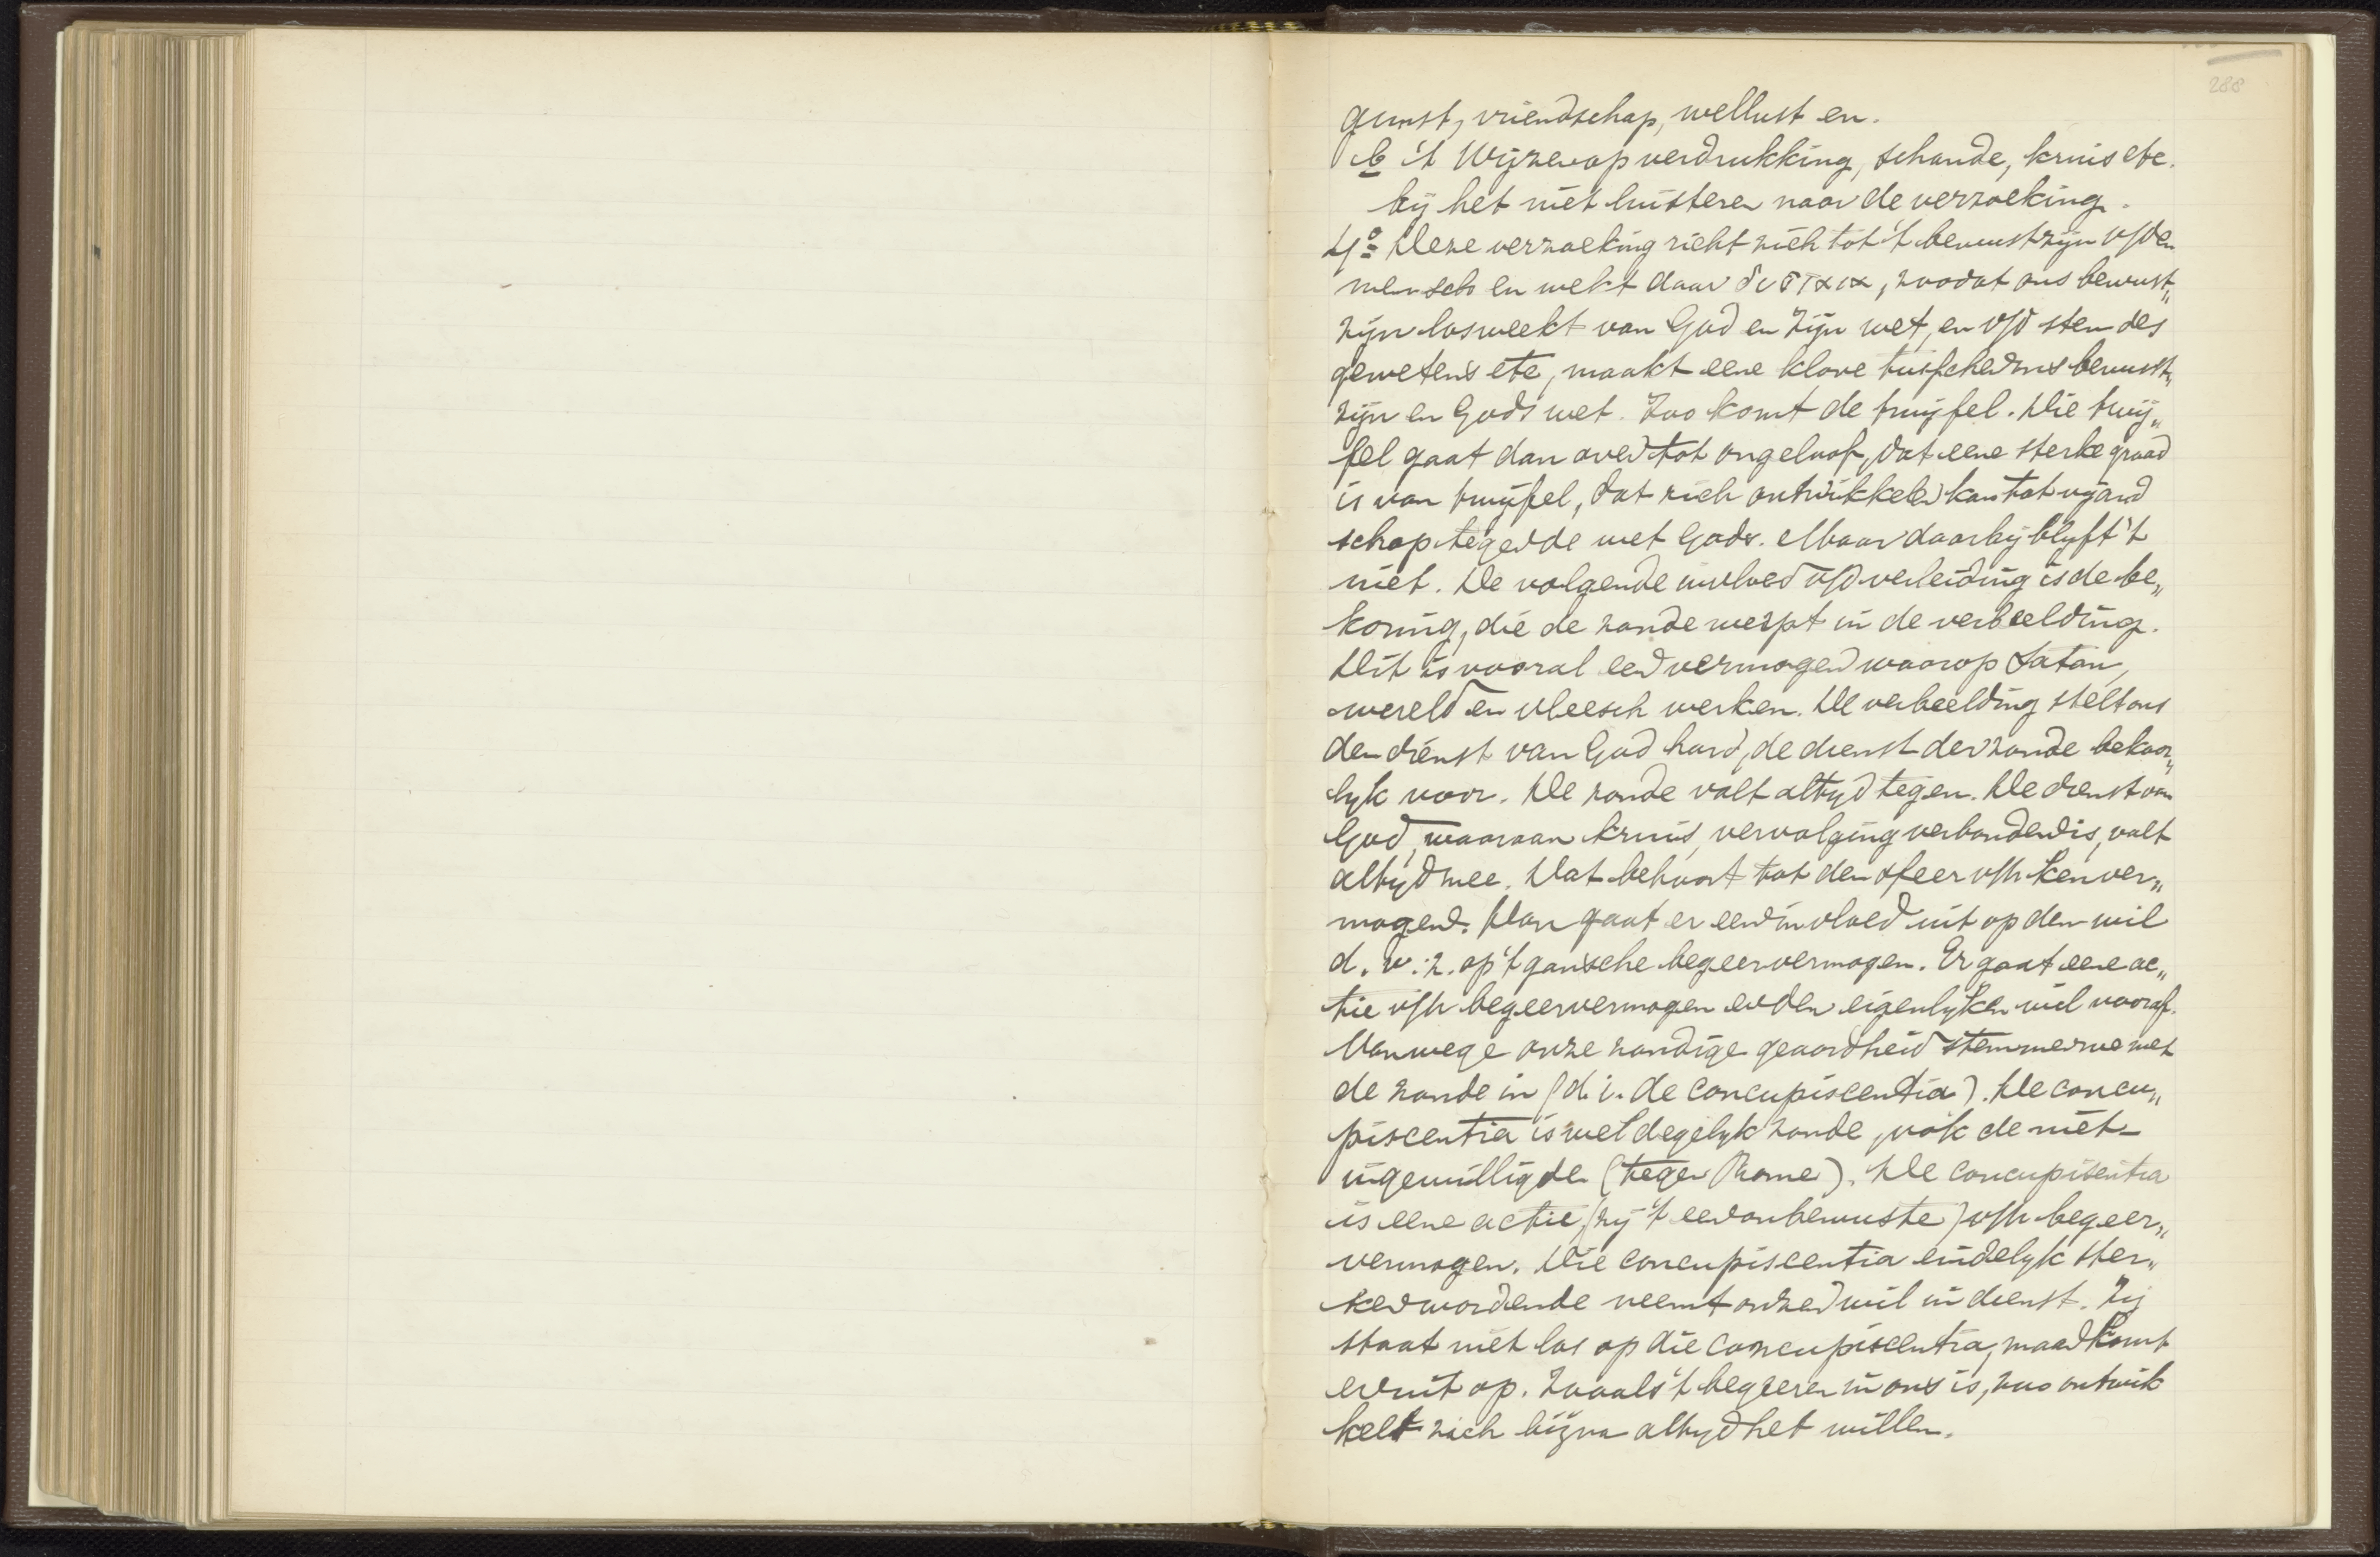 288
gunst, vriendschap, wellust en.
b 't Wijzen op verdrukking, schande, kruis etc.
bij het niet luisteren naar de verzoeking.
4º Deze verzoeking richt zich tot 't bewustzijn v/den
mensch en wekt daar δισταξια, zoodat ons bewust„
zijn losweekt van God en Zijn wet, en v/d stem des
gewetens etc, maakt eene klove tusschen ons bewust„
zijn en Gods wet. Zoo komt de twijfel. Die twij„
fel gaat dan over tot ongeloof, dat eene sterke graad
is van twijfel, dat zich ontwikkelen kan tot vijand
schap tegen de wet Gods. Maar daarbij blyft 't
niet. De volgende invloed v/d verleiding is de be„
koring, die de zonde werpt in de verbeelding.
Dit is vooral een vermogen waarop Satan,
wereld en vleesch werken. De verbeelding stelt ons
den dienst van God hard, de dienst der zonde bekoor„
lyk voor. De zonde valt altyd tegen. De dienst van
God, waaraan kruis, vervolging verbonden is, valt
altyd mee. Dat behoort tot den sfeer v/h kenver„
mogen. Dan gaat er een invloed uit op den wil
d. w. z. op 't gansche begeervermogen. Er gaat eene ac„
tie v/h begeervermogen en den eigenlyken wil vooraf.
Vanwege onze zondige geaardheid stemmen we met
de zonde in (d. i. de concupiscentia). De concu„
piscentia is wel degelyk zonde, ook de niet-
ingewilligde (tegen Rome). De concupisentia
is eene actie (zij 't een onbewuste) v/h begeer„
vermogen. Die concupiscentia eindelyk ster„
ker wordende neemt onzen wil in dienst. Zij
staat niet los op die concupiscentia, maar komt
er uit op. Zooals 't begeeren in ons is, zoo ontwik
kelt zich bijna altyd het willen.